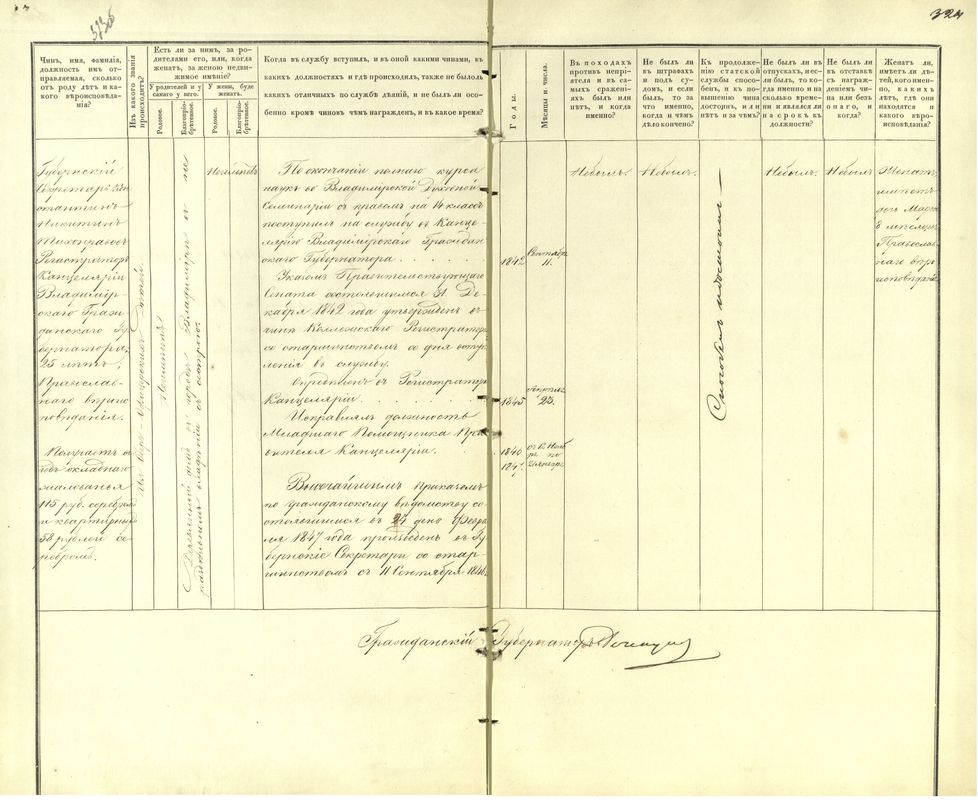 373об
324
Чинъ, имя, фамилія,
должность имъ от-
правляемая, сколько
отъ роду лѣтъ и ка-
кого вѣроисповѣда-
нія?
Изъ какого званія
происходитъ?
Есть ли за нимъ, за ро-
дителями его, или, когда
женатъ, за женою недви-
жимое имѣніе?
У родителей и у
самаго у него.
Родовое.
Благопріо-
брѣтенное.
У жены, буде
женатъ.
Родовое.
Благопріо-
брѣтенное.
Когда въ службу вступилъ, и въ оной какими чинами, въ
какихъ должностяхъ и гдѣ происходилъ, также не было ль
какихъ отличныхъ по службѣ дѣяній, и не былъ ли осо-
бенно кромѣ чиновъ чѣмъ награжденъ, и въ какое время?
Годы.
Мѣсяцы и числа.
Въ походахъ
противъ непрі-
ятеля и въ са-
мыхъ сражені-
яхъ былъ или
нѣтъ, и когда
именно?
Не былъ ли
въ штрафахъ
и подъ су-
домъ, и если
былъ, то за
что именно,
когда и чѣмъ
дѣло кончено?
Къ продолже-
нію статской
службы спосо-
бенъ, и къ по-
вышенію чина
достоинъ, или
нѣтъ и за чѣмъ?
Не былъ ли въ
отпускахъ, и ес-
ли былъ, то ко-
гда именно и на
сколько време-
ни и явился ли
на срокъ къ
должности?
Не былъ ли
въ отставкѣ
съ награж-
деніемъ чи-
на или безъ
онаго, и
когда?
Женатъ ли,
имѣетъ ли дѣ-
тей, кого имен-
но, какихъ
лѣтъ, гдѣ они
находятся и
какого вѣро-
исповѣданія?
Губернскій
Секретарь Кон-
стантинъ
Никитинъ
Тихонравовъ
Регистраторъ
Канцеляріи
Владимір-
скаго Граж-
данскаго Гу-
бернатора,
25 лѣтъ,
Православ-
наго вѣроис-
повѣданія.
Получаетъ въ
годъ окладнаго
жалованья
115 руб. серебромъ
и квартирныхъ
58 рублей се-
ребромъ.
Изъ Оберъ-Офицерскихъ дѣтей.
Неимѣетъ
Деревянный домъ въ городѣ Владимірѣ въ не
раздѣльномъ владѣніи съ сестрою
Неимѣетъ
По окончаніи полнаго курса
наукъ во Владимірской Духовной
Семинаріи съ правомъ на 14 классъ
поступилъ на службу въ Канце-
лярію Владимірскаго Граждан
скаго Губернатора
1842
Сентября
11.
Указомъ Правительствующаго
Сената состоявшимся 31 Де-
кабря 1842 года утвержденъ въ
чинѣ Коллежскаго Регистратора
со старшинствомъ со дня всту-
пленія въ службу.
Опредѣленъ въ Регистраторы
Канцеляріи
1845
25.
Исправлялъ должность
Младшаго Помощника Пра-
вителя Канцеляріи.
Высочайшимъ Приказомъ
по Гражданскому вѣдомству со-
стоявшимся въ 24 день Февра
ля 1847 года произведенъ въ Гу-
бернскіе Секретари со стар-
шинствомъ съ 11 Сентября 1846.
Небылъ.
Небылъ.
Способенъ и достоинъ
Небылъ.
Небылъ
Женатъ
имѣетъ
дочь Марію
8 мѣсяцевъ
Православ-
наго вѣро
исповѣданія
Гражданскій Губернаторъ